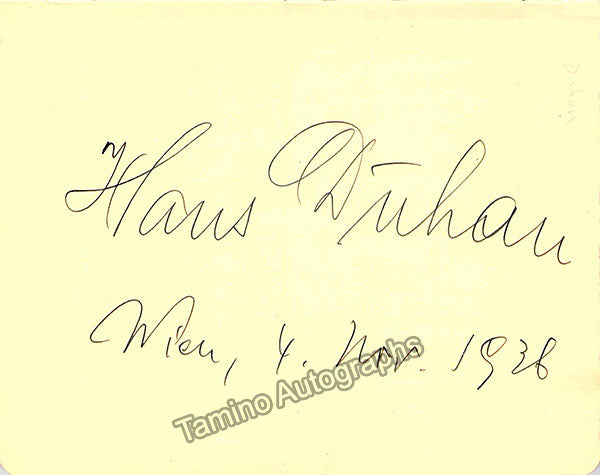 Duhan
Hans Duhan
Wien, 4. Nov. 1928
Tamino Autographs